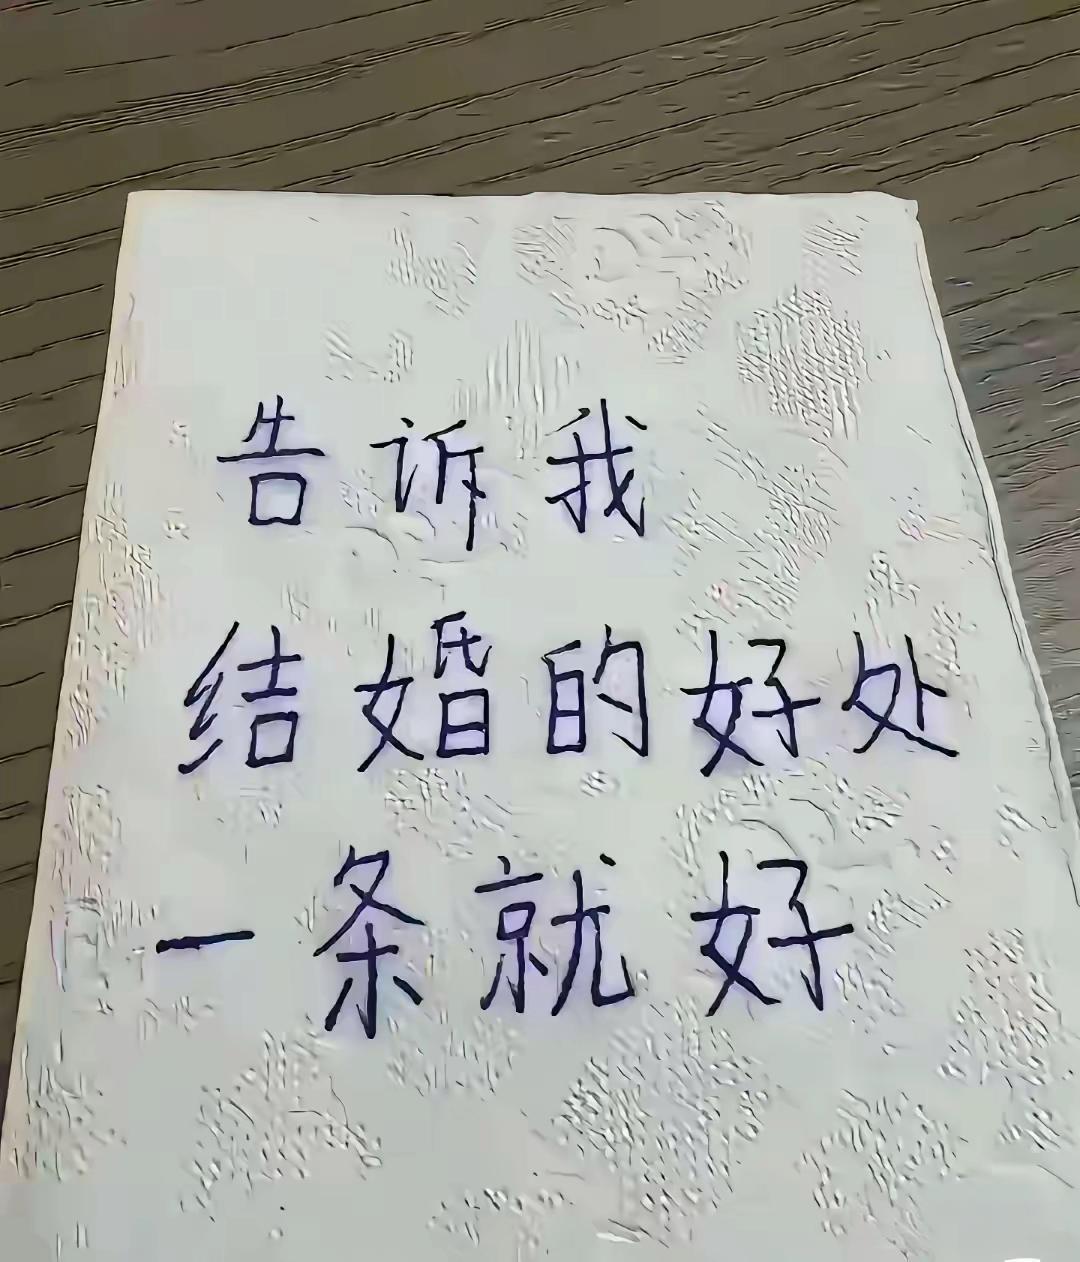 告诉我
结婚的好处
一条就好